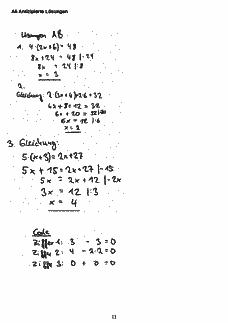 A6 Antizipierte Lösungen
Lösungen AB
1. 4·(2x+6) = 48
8x + 24 = 48 |-24
8x = 24 |:8
x = 3
2.
Gleichung: 2·(3x+4)+2·6=32
6x+8+12=32
6x+20=32|-20
6x=12|:6
x=2
3. Gleichung:
5·(x+3)=2x+27
5x+15=2x+27|-15
5x = 2x+12|-2x
3x = 12 |:3
x = 4
Code
Ziffer 1: 3 - 3 = 0
Ziffer 2: 4 - 2·2 = 0
Ziffer 3: 0 + 0 = 0